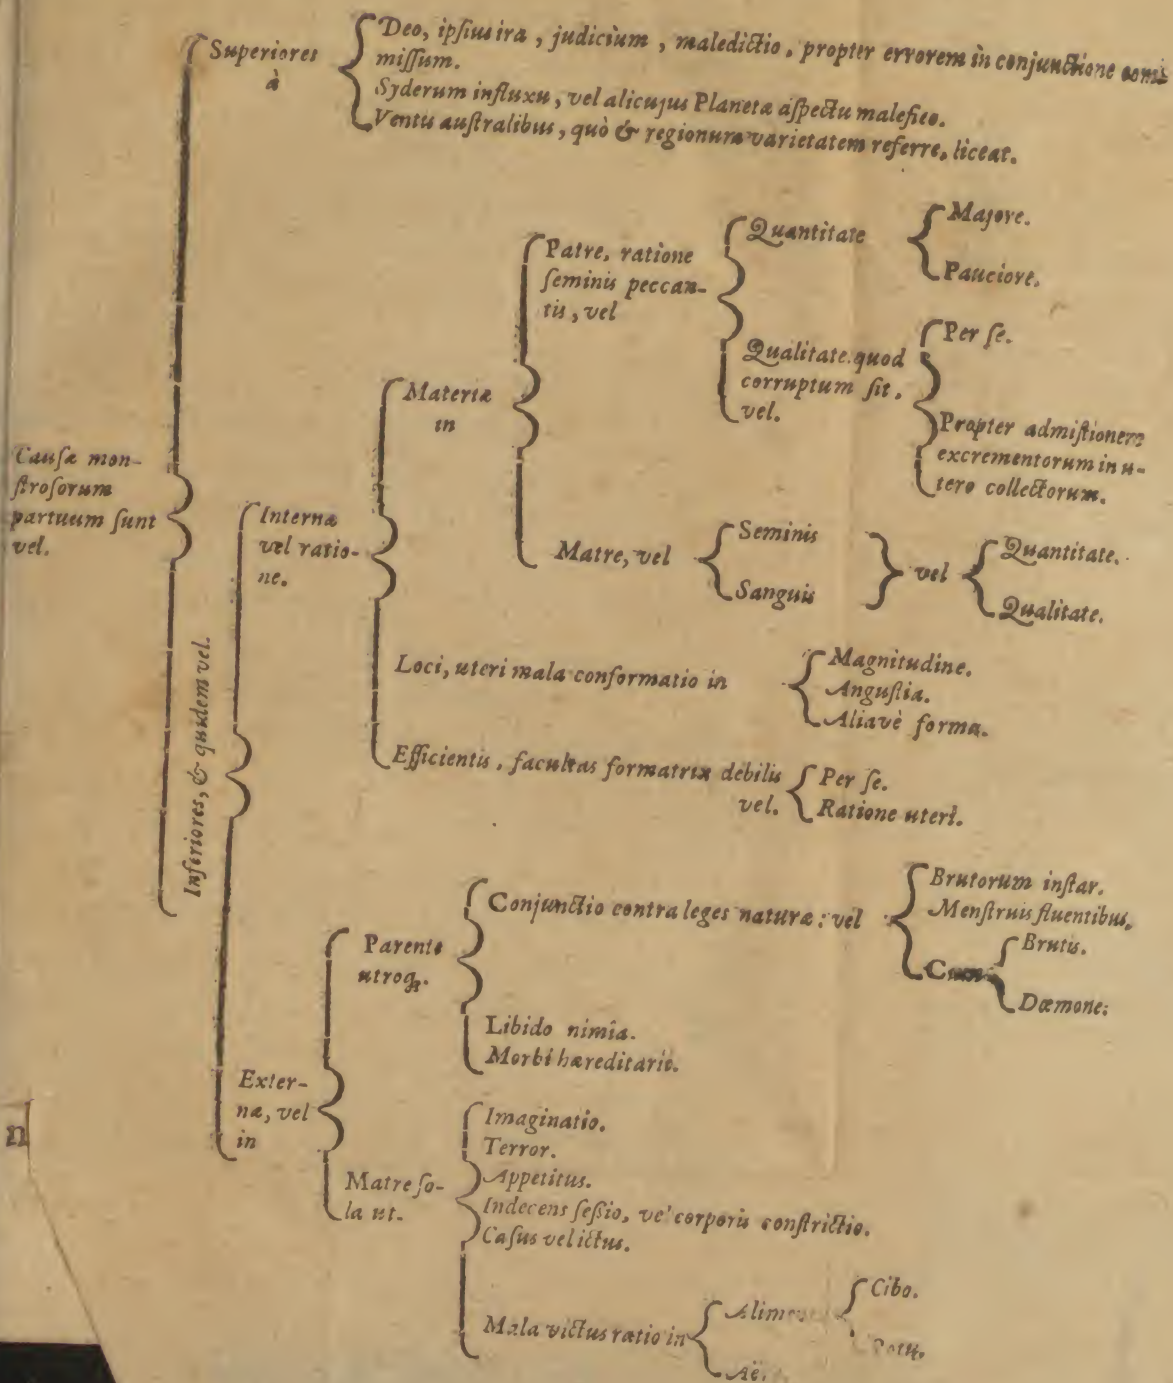 Superiores
à
Deo, ipſius ira, judicium, maledictio, propter errorem in conjunctione comi-
miſſum.
Syderum influxu, vel alicujus Planetæ aſpectu malefico.
Ventis auſtralibus, quò & regionum varietatem referre, liceat.
Cauſæ mon-
ſtroſorum
partuum ſunt
vel.
Inferiores, & quidem vel.
Internæ
vel ratio-
ne.
Materiæ
in
Patre, ratione
ſeminis peccan-
tis, vel
Quantitate
Majore.
Pauciore.
Qualitate quod
corruptum ſit,
vel.
Per ſe.
Propter admiſtionem
excrementorum in u-
tero collectorum.
Matre, vel
Seminis
Sanguis
vel
Quantitate.
Qualitate.
Loci, uteri mala conformatio in
Magnitudine.
Anguſtia.
Aliavè forma.
Efficientis, facultas formatrix debilis
vel.
Per ſe.
Ratione uteri.
Exter-
næ, vel
in
Parente
utroq;.
Conjunctio contra leges naturæ: vel
Brutorum inſtar.
Menſtruis fluentibus.
Cum
Brutis.
Dæmone.
Libido nimia.
Morbi hæreditarii.
Matre ſo-
la ut.
Imaginatio.
Terror.
Appetitus.
Indecens ſeßio, vel corporis conſtrictio.
Caſus vel ictus.
Mala victus ratio in
Cibo.
Potu.
n